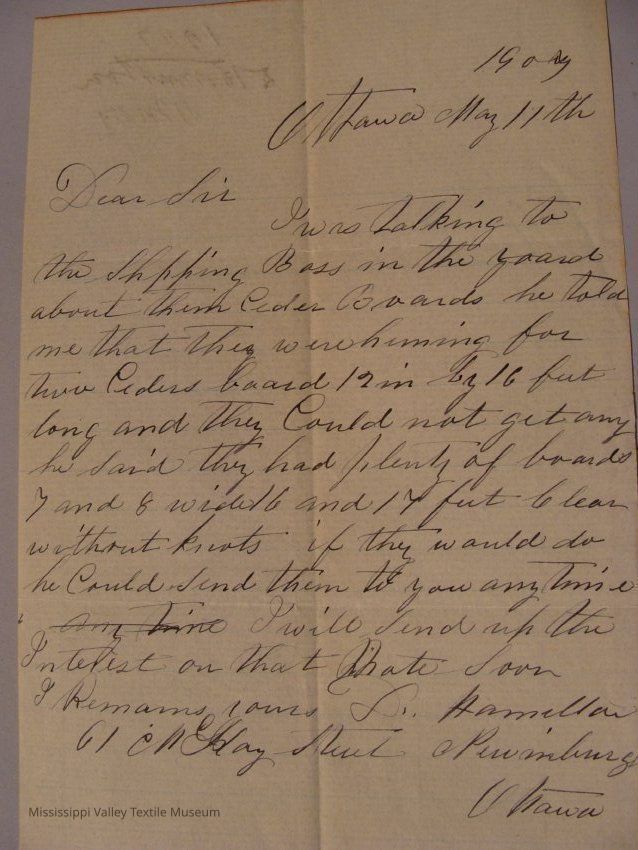 1909
Ottawa May 11th
Dear Sir
I was talking to
the Shpping Boss in the yoard
about them Ceder Boards he told
me that they were huning for
two Ceders board 12 in by 16 feet
long and they Could not get any
he said they had plenty of boards
7 and 8 wide 16 and 14 feet Clear
without knots if they would do
he Could Send them to you any time
any time I will Send up the
Interest on that Note Soon
I Remains yours S. Hamelton
61 Street
Ottawa
Mississippi Valley Textile Museum